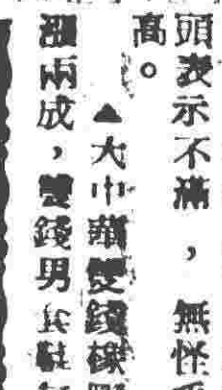 頭表示不滿,無怪
高。
▲大中華雙錢橡
漲兩成,雙錢男